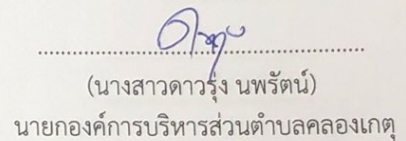 (นางสาวดาวรุ่ง นพรัตน์)
นายกองค์การบริหารส่วนตำบลคลองเกตุ